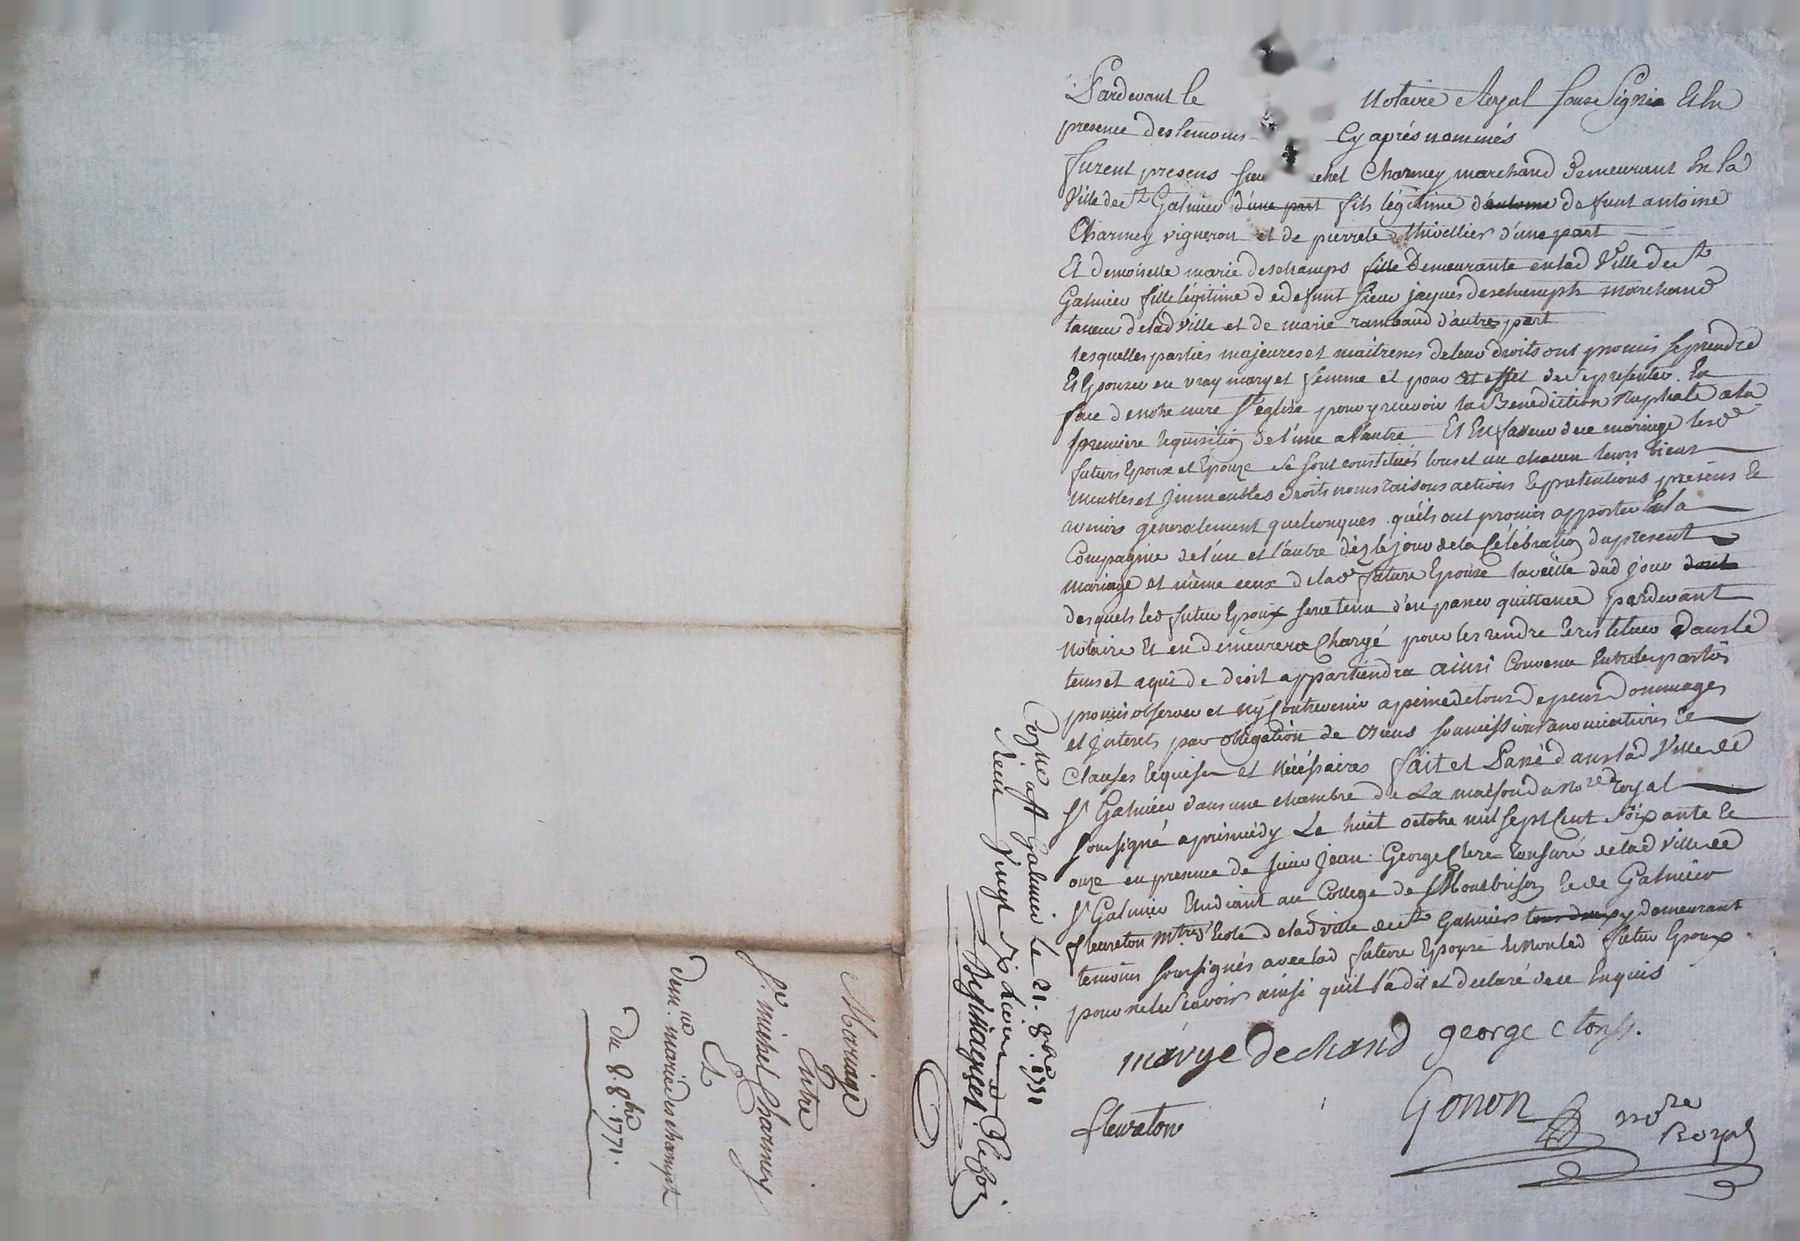 Pardevant le Notaire Royal sousSigné Et En
presence des temoins Cy aprés nommés
furent presens sieur chel Charmey marchand Demeurant En la
Ville de st Galmier d'une part fils légitime d'antoine defunt antoine
Charmey vigneron et de pierrete thivellier d'une part
Et demoiselle marie deschamps fille Demeurante en lad Ville de st
Galmier fille légitime de defunt sieur jaques deschamps marchand
taneur de lad ville et de marie rambaud d'autre part
lesquelles parties majeures et maitresses de leur droits ont promis se prendre
Et Epouser en vray mary et femme et pour cet effet de se presenter En
face de notre mere ste eglise pour y recevoir la Benediction Nuptiale a la
premiere requisition de l'une a l'autre Et En faveur de ce mariage lesd
futurs Epoux et Epouze se sont constitués tous et un chacun leurs biens
meubles et jmmeubles droits noms raisons actions Et pretentions présens Et
avenirs généralement quelconques quils ont promis apporter En la
Compagnie de l'un et l'autre dès le jour de la Célébration du present
mariage et même ceux de lad future Epouse la veille dud jour dont
desquels led futur Epoux sera tenu d'en passer quittance pardevant
Notaire Et en demeurera Chargé pour les rendre Et restituer dans le
tems et a qui de droit appartiendra ainsi Convenu Entre les parties
promis observer et n'y Contrevenir a peine de tous depens Dommages
et jnterets par obligation de Biens soumissions renonciations Et
Clauses requises et Nécéssaires fait et Passé dans lad Ville de
st Galmier dans une chambre de La maison du nore royal
soussigné aprèsmidy Le huit octobre mil sept Cent soixante Et
onze en presence de sieur jean George Clerc tonsuré de lad ville de
st Galmier Etudiant au College de Montbrison Et de Galmier
fleureton mtre d'Ecole de lad ville de st Galmier tous deux y demeurant
temoins soussignés avec lad future Epouse Et non led futur Epoux
pour ne le sçavoir ainsi qu'il l'a dit et declaré de ce Enquis
marye dechand george c tons.
fleureton Gonon nore
Royal
Copie a st Galmier le 21 8bre 1771
Reçu vingt
Mariage
Entre
sr michel Charmey
Et
demlle marie deschamps
du 8 8bre 1771.